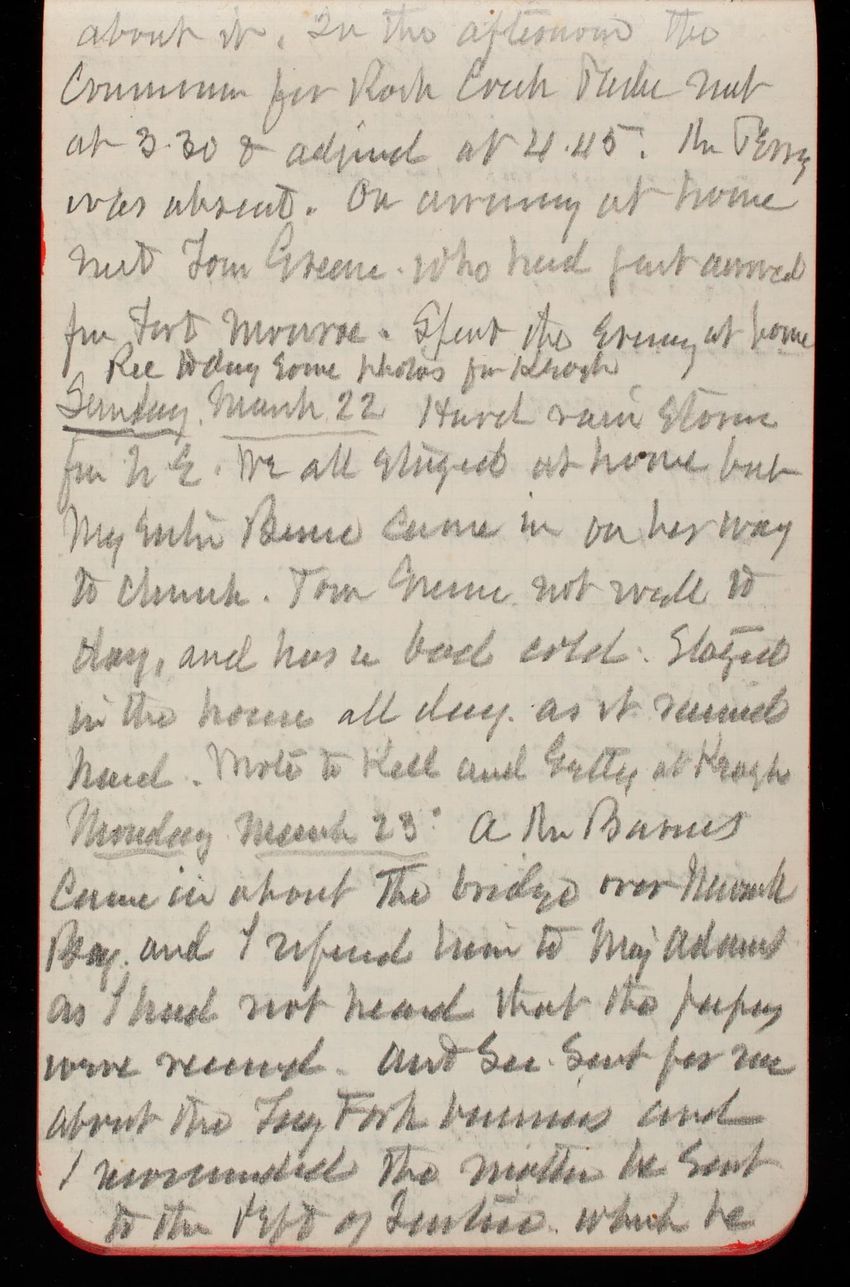 about it. In the afternoon the
Commission for Rock Creek Park met
at 3.30 & adjrned at 4.45. Mr Perry
was absent. On arriving at home
met Tom Greene. who had just arrived
from Fort Monroe. Spent the Evening at home
Rec today some photos from Keogh
Sunday. March 22 Hard rain storm
from N E. We all stayed at home but
My sister Bessie came in on her way
to church. Tom Greene not well to
day, and has a bad cold. Stayed
in the house all day. as it rained
hard. Wrote to Kell and Getty at Keogh
Monday March 23d A Mr Barnes
Came in about the bridge over Newark
Bay. and I referred him to Maj Adams
as I had not heard that the papers
were received. Asst Sec. Sent for me
about the Fork business and
I recommended the matter be sent
to the Dept of Justice. which he